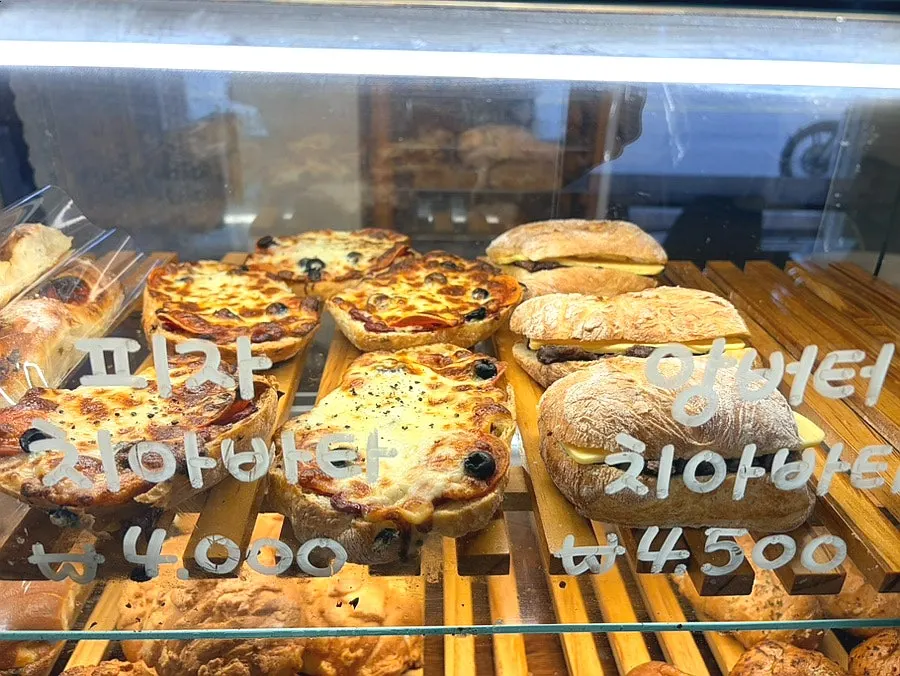 피자
치아바타
₩ 4.000
앙버터
치아바타
₩4.500